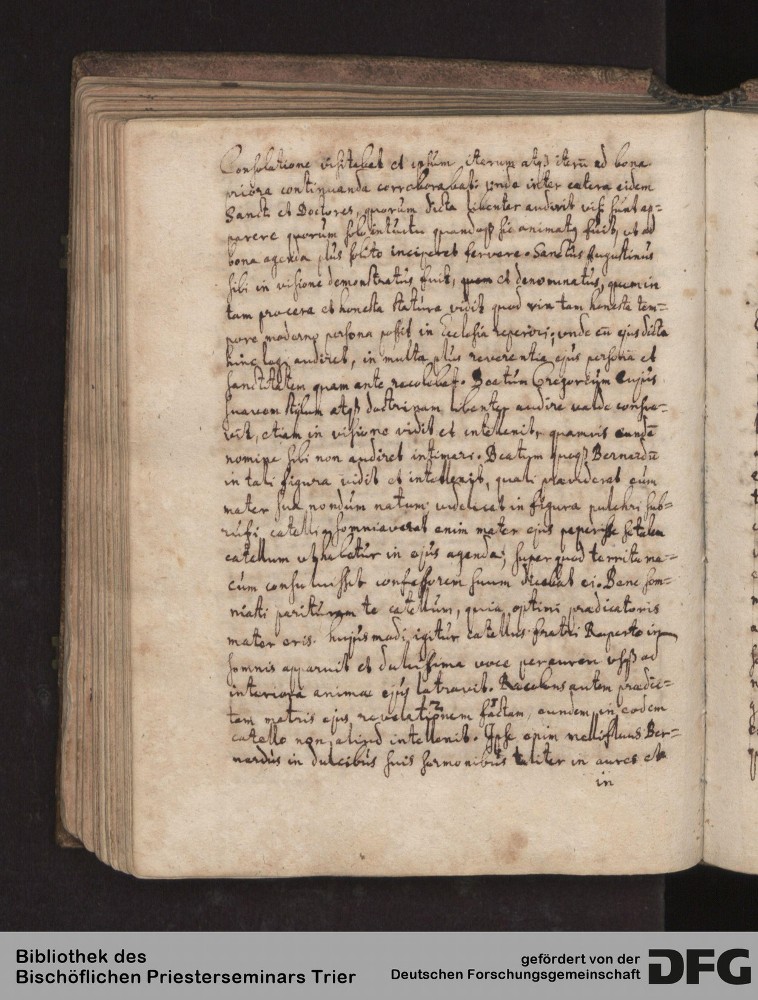 Consolatione visitabat et ipsum iterum atq3 iterū ad bona
priora continuanda corroborabat: unde inter cætera eidem
Sancti et Doctores, quorum dicta libenter audivit visi sunt ap=
parere quorum solo intuitu quandoq3 sic animatq fuit, ut ad
bona agenda plus solito inciperet fervere. Sanctus Augustinus
sibi in visione demonstratus fuit, quem et denominatus, quem in
tam procera et honesta statura vidit quod vix tam honesta tem=
pore moderno persona possit in Ecclesia reperiri, unde cū ejus dicta
hinc legi audiret, in multa plus reverentia ejus persona et
sanctitatem quam ante recolebat. Beatum Gregorium cujus
suavem stylum atq3 doctrinam libenter audire valde consue=
vit, etiam in visione vidit et intellexit, quamvis eundē
nomine sibi non audiret intimari. Beatum quoq3 Bernardū
in tali figura vidit et intellexit, quali præviderat eum
mater sua nondum natum; videlicet in figura pulchri sub=
rufi catelli, somniaverat enim mater ejus peperisse
catellum in ejus agenda; super quod territa
cum consuluisset confessorem suum dicebat ei. Bene som=
niasti parituram te catellum, quia optimi prædicatoris
mater eris. hujusmodi igitur catellus fratri Ruperto in
somnis apparuit et dulcissima voce per aurem usq3 ad
interiora animæ ejus latravit. Recolens autem prædic=
tam matris ejus revelationem factam, eundem in eodem
catello non aliud intellexit. Ipse enim mellifluus Ber=
nardus in dulcibus suis sermonibus taliter in aures et
in
Bibliothek des
Bischöflichen Priesterseminars Trier
gefördert von der
Deutschen Forschungsgemeinschaft
DFG